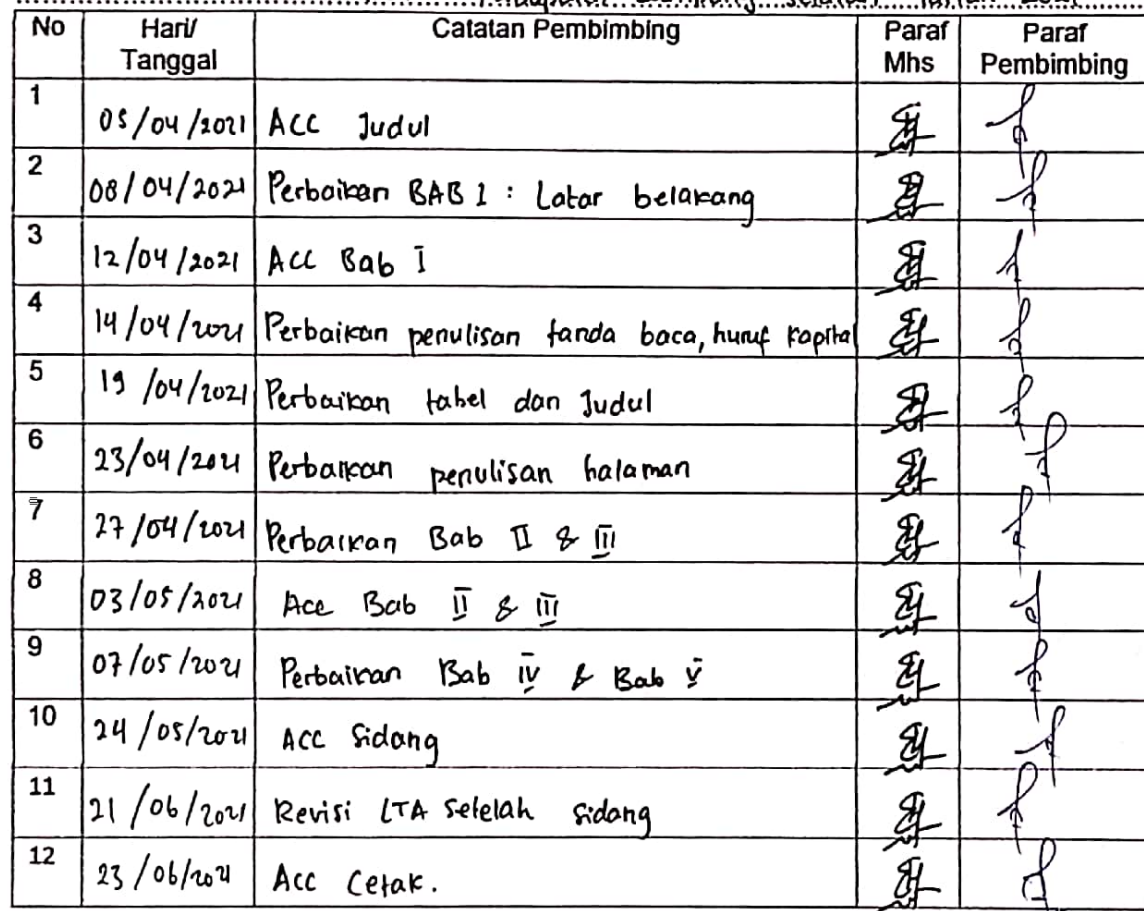 No Hari/ Tanggal Catatan Pembimbing Paraf Mhs Paraf Pembimbing
1 05/04/2021 ACC Judul
2 08/04/2021 Perbaikan BAB I : Latar belakang
3 12/04/2021 Acc Bab I
4 14/04/2021 Perbaikan penulisan tanda baca, huruf kapital
5 19/04/2021 Perbaikan tabel dan Judul
6 23/04/2021 Perbaikan penulisan halaman
7 27/04/2021 Perbaikan Bab II & III
8 03/05/2021 Acc Bab II & III
9 07/05/2021 Perbaikan Bab IV & Bab V
10 24/05/2021 ACC Sidang
11 21/06/2021 Revisi LTA setelah sidang
12 23/06/2021 Acc Cetak.